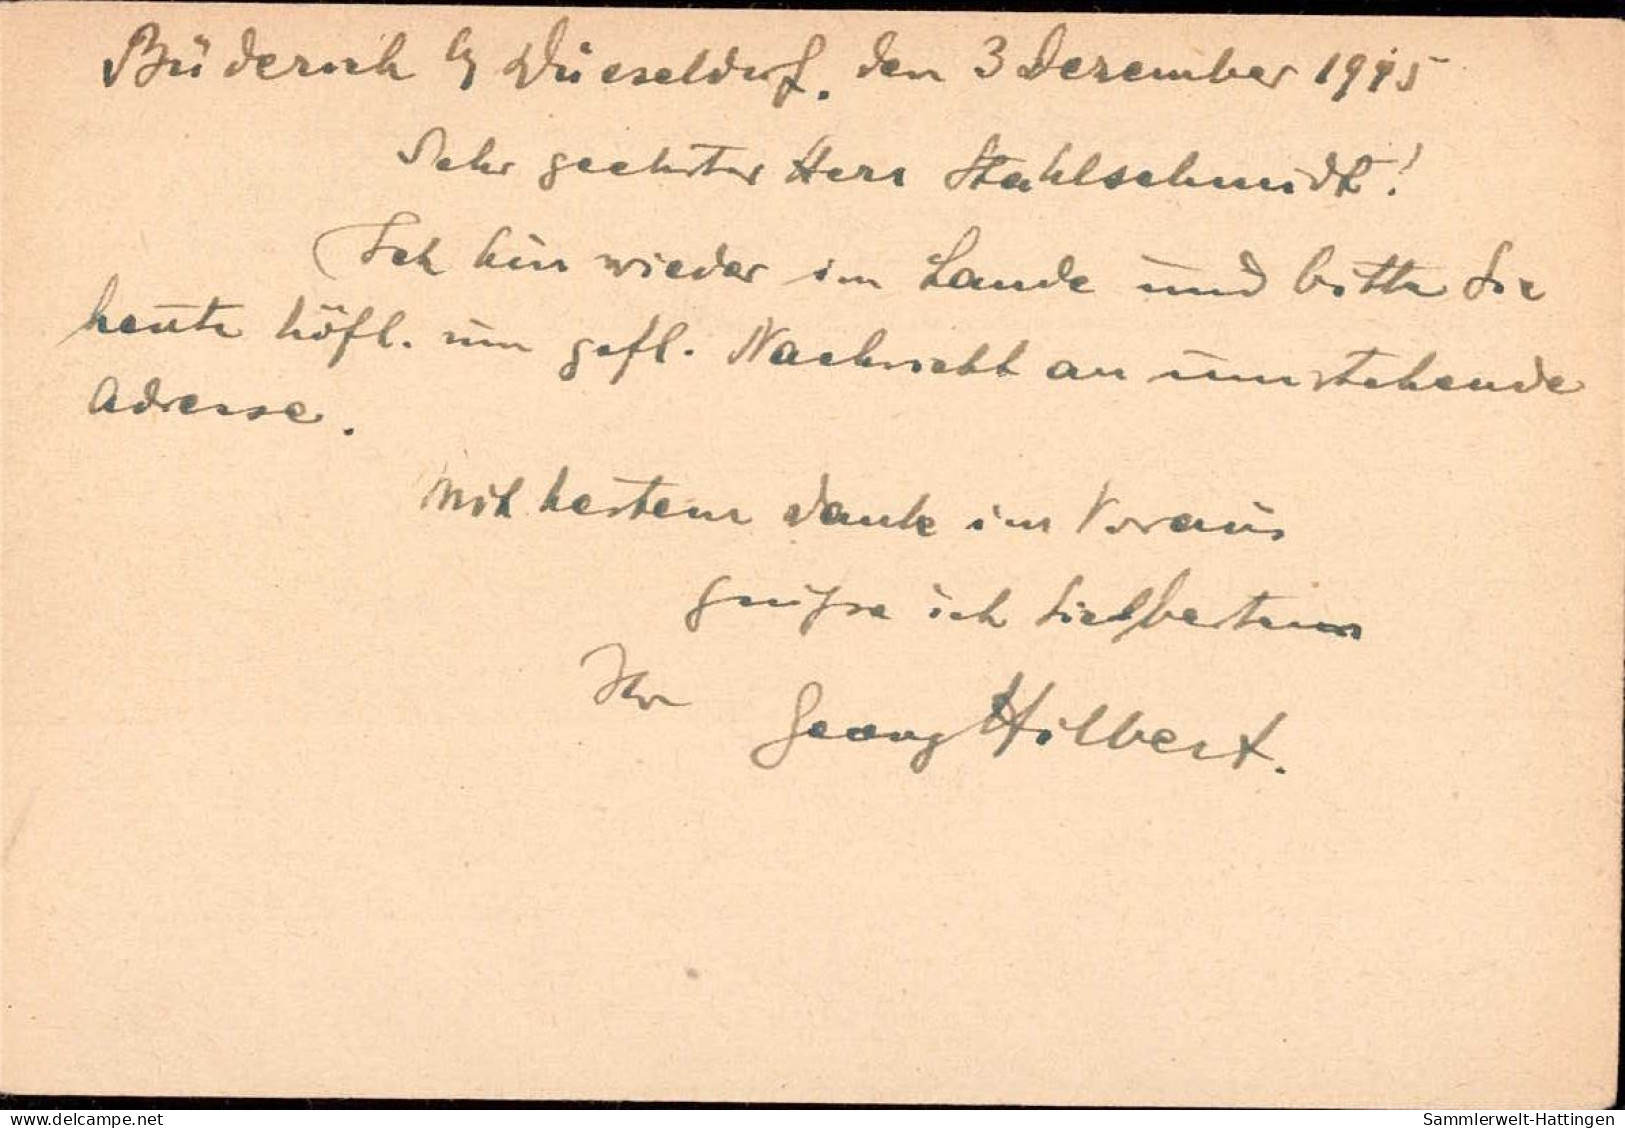 Büderich b/ Düsseldorf. den 3 Dezember 1945
Sehr geehrter Herr Stahlschmidt!
Ich bin wieder im Lande und bitte Sie
heute höfl. um gefl. Nachricht an umstehende
Adresse.
Mit bestem Dank im Voraus
grüße ich Sie bestens
Ihr Georg Hilbert.
www.delcampe.net
Sammlerwelt-Hattingen